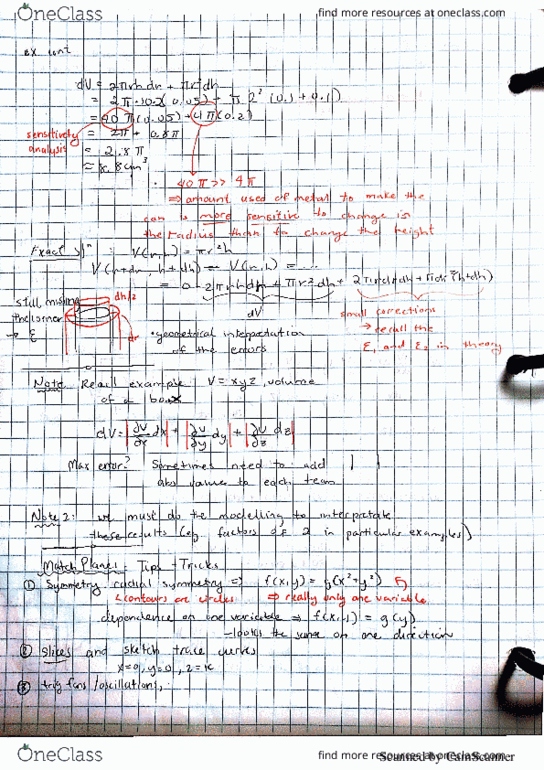 OneClass
find more resources at oneclass.com
ex cont
dV = 2πrh dr + πr²dh
= 2π·10·2(0.05) + π 2² (0.1+0.1)
= 40π(0.05) + 4π(0.2)
sensitively analysis
= 2π + 0.8π
= 2.8π
≈ 8.8cm³
40π >> 4π
⇒ amount used of metal to make the
can is more sensitive to change is
the radius than to change the height
Exact
V(r,h) = πr²h
V(r+dr, h+dh) - V(r,h) = ...
still missing
the corner
→ ε
dh/2
dr
dV
small corrections
→ recall the
ε₁ and ε₂ in theory
• geometrical interpretation
of the errors
Note Recall example V = xyz, volume
of a box
dV = |∂V/∂x dx| + |∂V/∂y dy| + |∂V/∂z dz|
Max error? Sometimes need to add | |
abs values to each term
Note 2: we must do the modelling to interpretate
these results (eg. factors of 2 in particular examples)
Match Planes - Tips - Tricks
① Symmetry - radial symmetry ⇒ f(x,y) = g(x²+y²)
contours are circles ⇒ really only one variable
dependence on one variable ⇒ f(x,y) = g(y)
- looks the same on one direction
② Slices and sketch trace curves
x=0, y=0, z=k
③ trig fcns/oscillations,
OneClass
find more resources at oneclass.com
Scanned by CamScanner